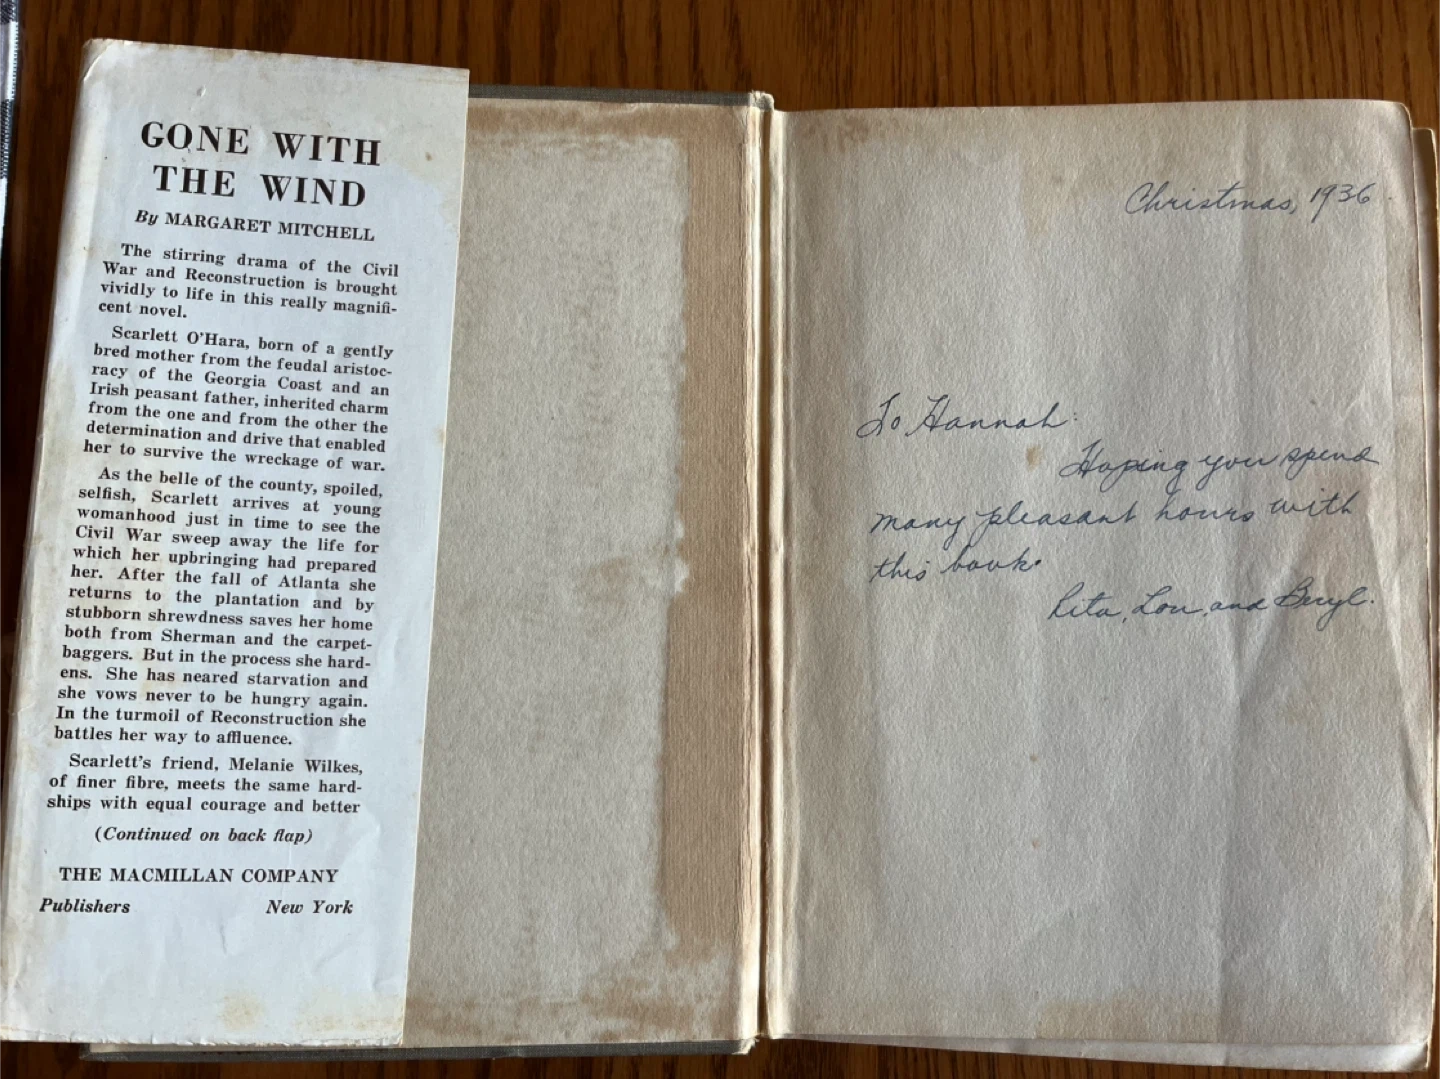 GONE WITH
THE WIND
By MARGARET MITCHELL
The stirring drama of the Civil
War and Reconstruction is brought
vividly to life in this really magnifi-
cent novel.
Scarlett O'Hara, born of a gently
bred mother from the feudal aristoc-
racy of the Georgia Coast and an
Irish peasant father, inherited charm
from the one and from the other the
determination and drive that enabled
her to survive the wreckage of war.
As the belle of the county, spoiled,
selfish, Scarlett arrives at young
womanhood just in time to see the
Civil War sweep away the life for
which her upbringing had prepared
her. After the fall of Atlanta she
returns to the plantation and by
stubborn shrewdness saves her home
both from Sherman and the carpet-
baggers. But in the process she hard-
ens. She has neared starvation and
she vows never to be hungry again.
In the turmoil of Reconstruction she
battles her way to affluence.
Scarlett's friend, Melanie Wilkes,
of finer fibre, meets the same hard-
ships with equal courage and better
(Continued on back flap)
THE MACMILLAN COMPANY
Publishers New York
Christmas, 1936
To Hannah:
Hoping you spend
many pleasant hours with
this book.
Rita, Lou, and Beryl.